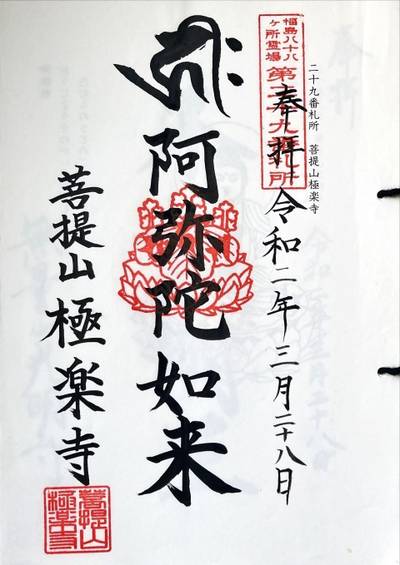 二十九番札所　菩提山極楽寺
福島八十八
ヶ所霊場
第二十九番札所
奉拝 令和二年三月二十八日
阿弥陀如来
菩提山 極楽寺
菩提山
極楽寺